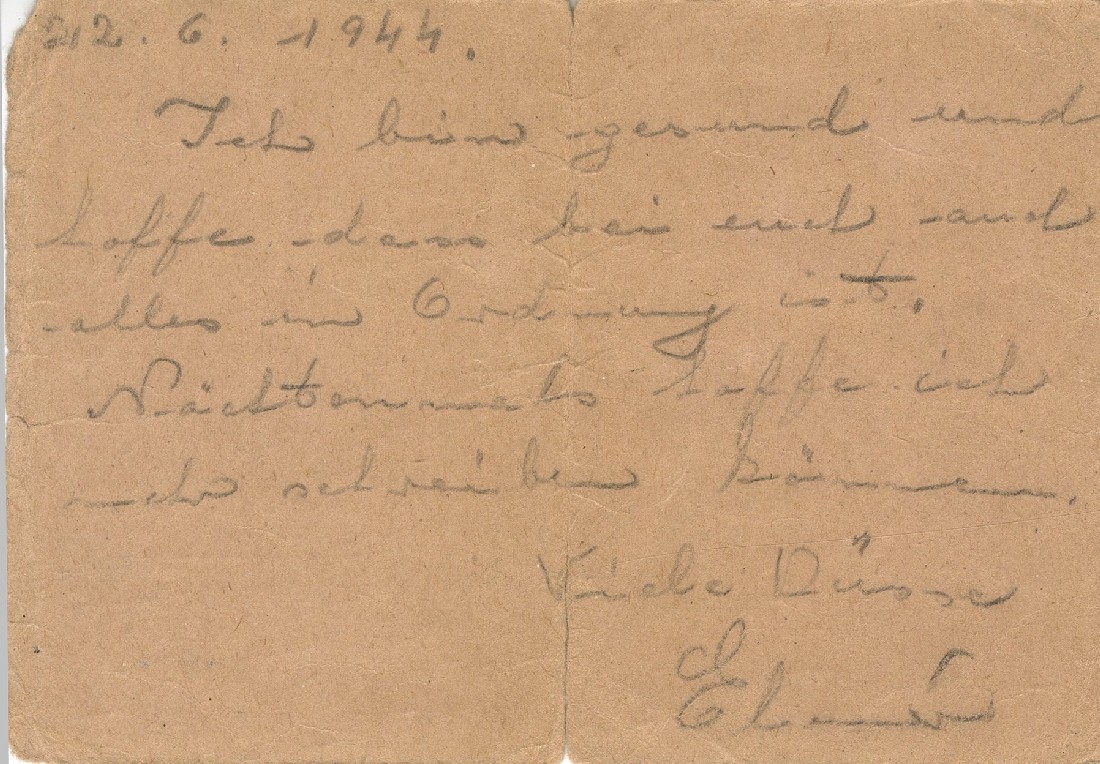 22. 6. 1944.
Ich bin gesund und
hoffe dass bei euch auch
alles in Ordnung ist.
Nächtenmals hoffe ich
mehr schreiben können.
Viele Küsse